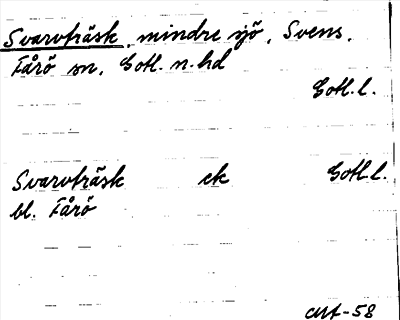 Svarvträsk, mindre sjö, Svens,
Fårö sn, Gotl. n. hd
Gotl. l.
Svarvträsk ek Gotl. l.
bl. Fårö
-58